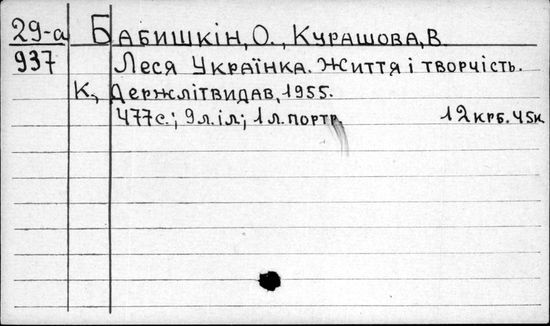 29-а Бабишкін, О., Курашова, В.
937 Леся Українка. Життя і творчість.
К., Держлітвидав, 1955.
477с.; 9 л. іл.; 1 л. портр. 12 крб. 45к